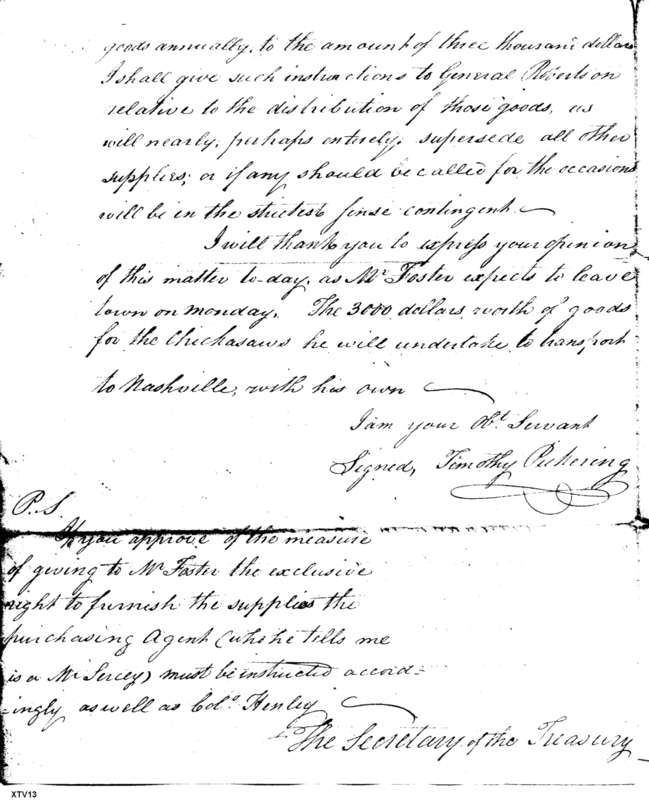 goods annually, to the amount of three thousand dollars
I shall give such instructions to General Robertson
relative to the distribution of those goods, as
will nearly, perhaps entirely, supersede all other
supplies; or if any should be called for the occasions
will be in the strictest sense contingent.
I will thank you to express your opinion
of this matter to-day, as Mr. Foster expects to leave
town on monday. The 3000 dollars worth of goods
for the Chickasaws he will undertake to transport
to Nashville, with his own
I am your Obt. Servant
Signed, Timothy Pickering
P.S.
If you approve of the measure
of giving to Mr Foster the exclusive
right to furnish the supplies the
purchasing Agent (who he tells me
is a Mr Sercey) must be instructed accord=
=ingly as well as Colo. Henley
The Secretary of the Treasury
XTV13